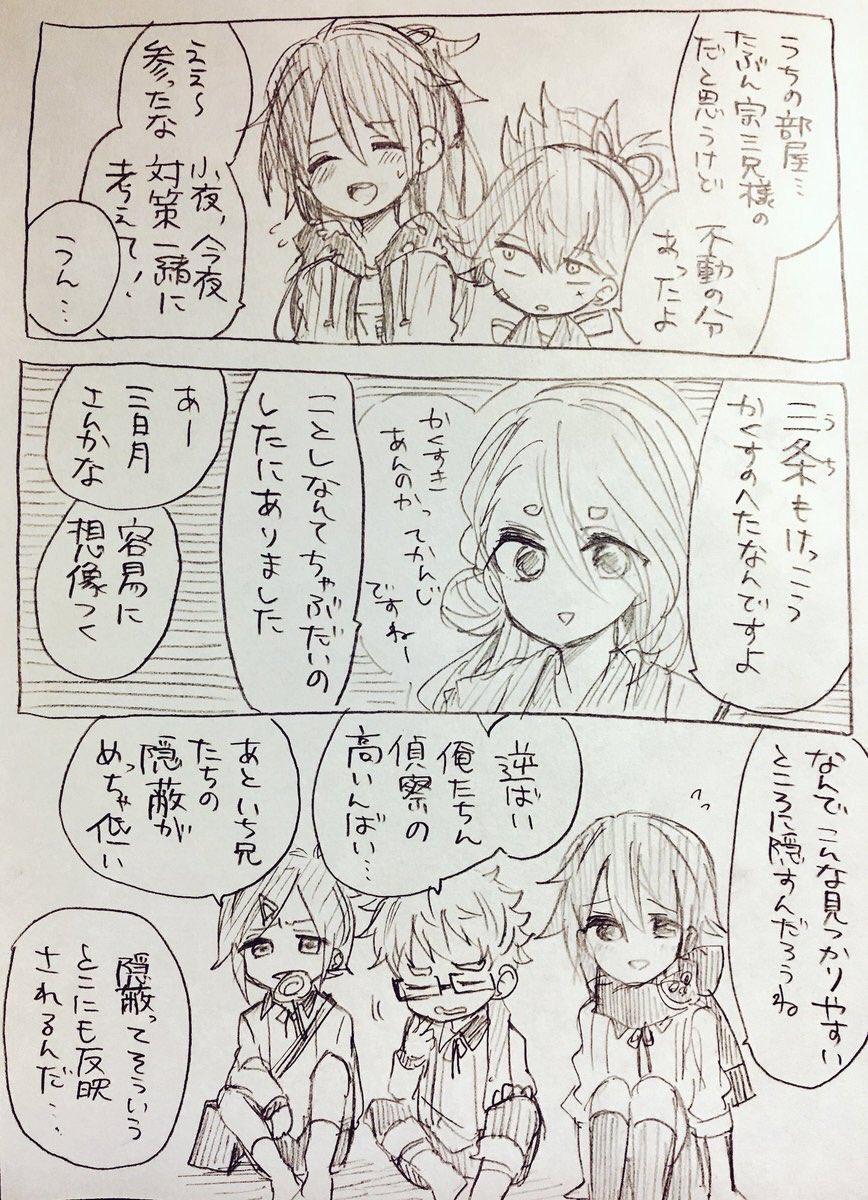 うちの部屋…
たぶん宗三兄様の
だと思うけど
不動の分
あったよ
ええ〜
参ったな
小夜、今夜
対策一緒に
考えて！
うん…
三条もけっこう
うち
かくすのへたなんですよ
かくすき
あんのかってかんじ
ですねー
ことしなんてちゃぶだいの
したにありました
あー
三日月
さんかな
容易に
想像つく
なんでこんな見つかりやすい
ところに隠すんだろうね
逆ばい
俺たちん
偵察の
高いんばい…
あといち兄
たちの
隠蔽が
めっちゃ低い
隠蔽ってそういう
とこにも反映
されるんだ…